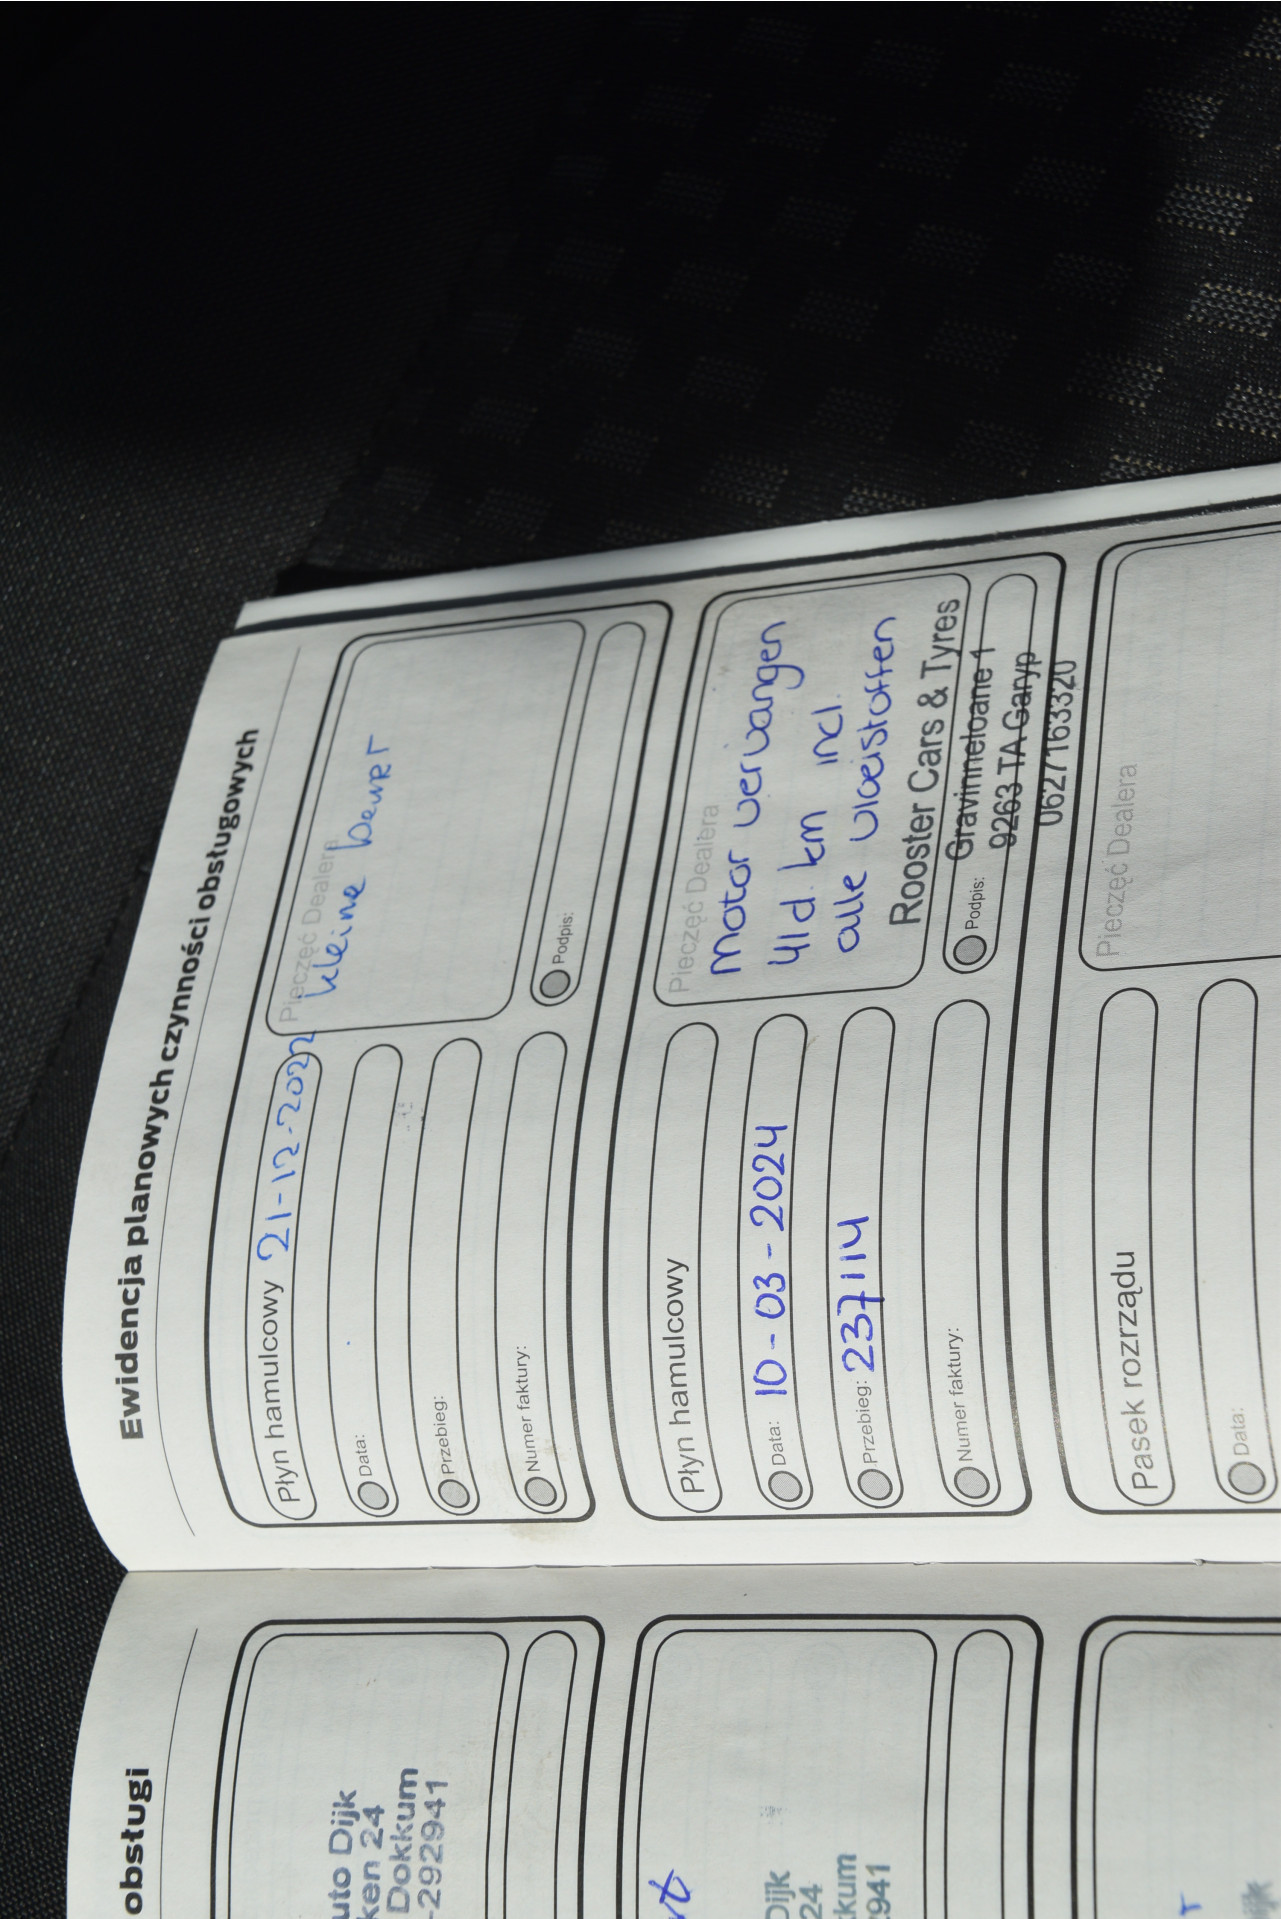 Ewidencja planowych czynności obsługowych
Płyn hamulcowy 21-12-2022
Data:
Przebieg:
Numer faktury:
Pieczęć Dealera
kleine beurt
Podpis:
Płyn hamulcowy
Data: 10-03-2024
Przebieg: 237114
Numer faktury:
Pieczęć Dealera
Motor vervangen
41d. km incl.
alle vloeistoffen
Rooster Cars & Tyres
Gravinneloane 1
9263 TA Garyp
0627163320
Podpis:
Pasek rozrządu
Data:
Pieczęć Dealera
obsługi
uto Dijk
ken 24
Dokkum
-292941
rt
Dijk
24
kkum
941